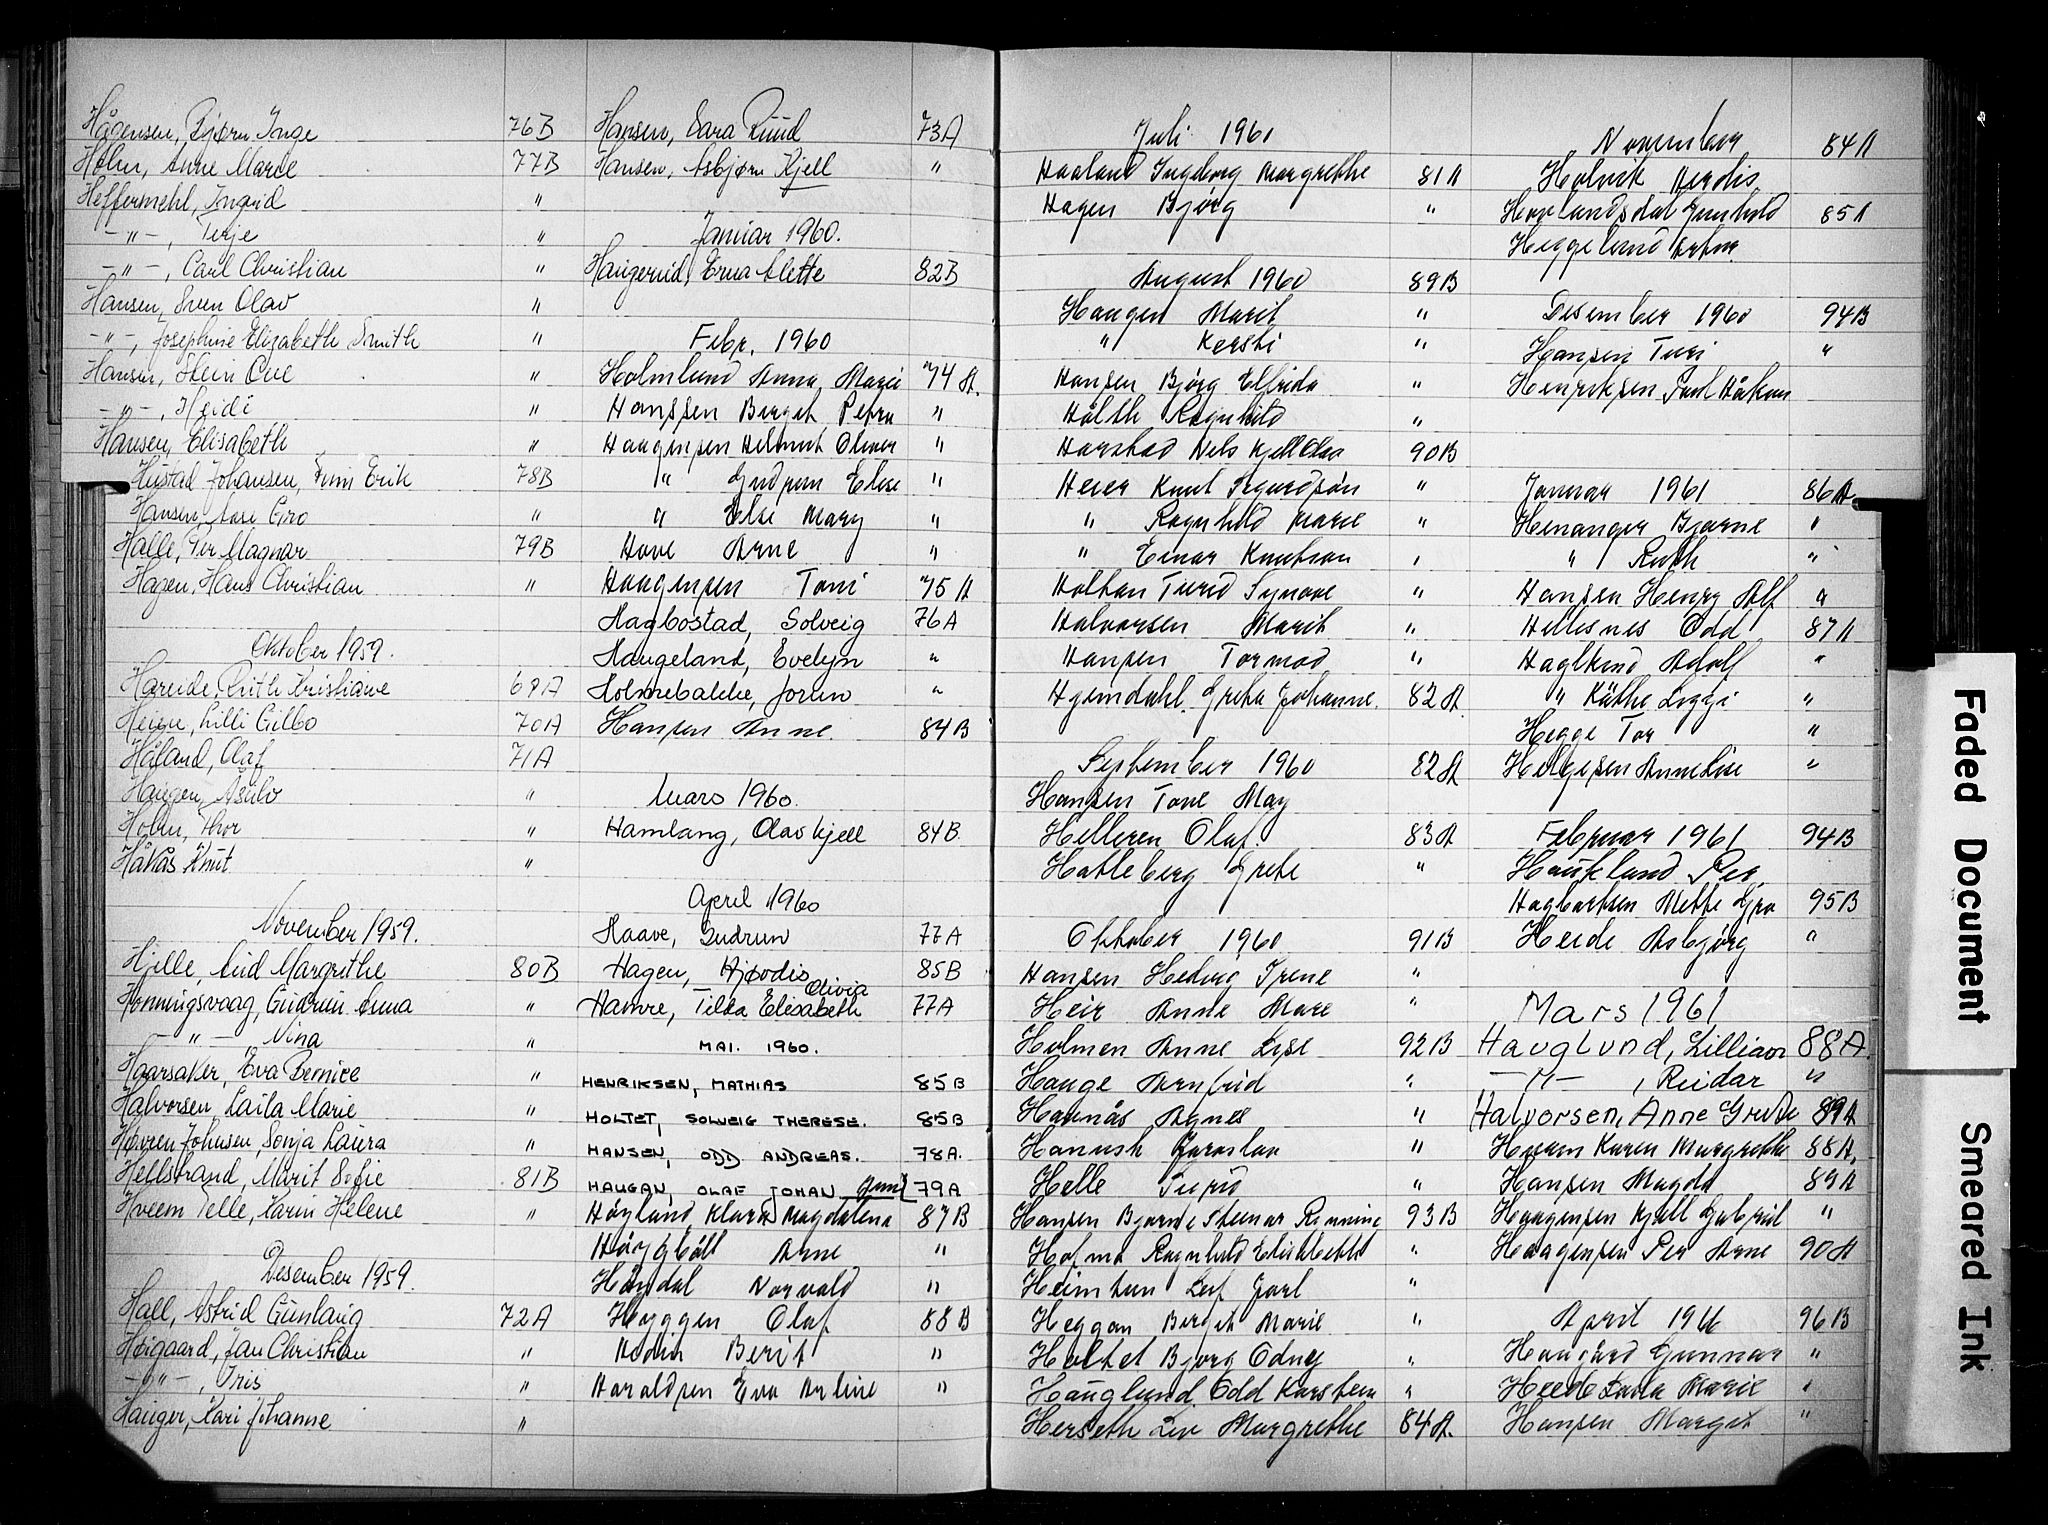 Hågensen, Bjørn Inge 76B
Holm, Anne Marie 77B
Heffermehl, Ingrid "
-"-, Terje "
-"-, Carl Christian "
Hansen, Sven Olav "
-"-, Josephine Elizabeth Smith "
Hansen, Stein Ove "
-"-, Heidi "
Hansen, Elisabeth "
Hustad Johansen, Finn Erik 78B
Hansen, Aase Gro "
Halle, Per Magnar 79B
Hagen, Hans Christian "
Oktober 1959.
Hareide, Ruth Kristiane 69A
Heien, Lilli Gilbo 70A
Håland, Olaf 71A
Haugen, Asulv "
Holm, Thor "
Håkås Knut "
November 1959.
Hjelle, Aud Margrethe 80B
Honningsvaag, Gudrun Anna "
-"-, Nina "
Haarsaker, Eva Bernice "
Halvorsen, Laila Marie "
Hovren Johnsen, Sonja Laura "
Hellstrand, Marit Sofie 81B
Hveem Telle, Karin Helene "
Desember 1959.
Hall, Astrid Gunlaug 72A
Høigaard, Jan Christian "
-"-, Iris "
Hauger, Kari Johanne "
Hansen, Sara Ruud 73A
Hansen, Asbjørn Kjell "
Januar 1960.
Haugerud, Erna Alette 82B
Febr. 1960
Holmlund Anna Marie 74A.
Hanssen Birgit Petra "
Haagensen Helmut Oliver "
" Gudrun Elise "
" Else Mary "
Hove Arne "
Haagensen Toni 75A
Hagbostad, Solveig 76A
Haugeland, Evelyn "
Holmebakke, Jorun "
Hansen Anne 84B
Mars 1960.
Hamlang, Olav Kjell 84B.
April 1960
Haave, Gudrun 77A
Hagen, Hjørdis 85B
Olivia
Hamre, Tilda Elisabeth 77A
MAI. 1960.
HENRIKSEN, MATHIAS 85B
HOLTET, SOLVEIG THERESE. 85B
HANSEN, ODD ANDREAS. 78A.
HAUGAN, OLAF JOHAN 79A
Høyland, Klara Magdalena 87B
Arne "
Norvald "
Hoggen Olaf 88B
Hodin Berit "
Haraldsen Eva Arline "
Juli 1960
Haaland Ingeborg Margrethe 81A
Hagen Bjørg "
August 1960 89B
Haugen Marit "
" Kersti "
Hansen Bjørg Elfrida "
Hålth Ragnhild "
Harstad Nils Kjell Olav 90B
Heier Knut Sigurdsøn "
" Ragnhild Marie "
" Einar Knutson "
Holthan Turid Synøve "
Halvorsen Marit "
Hansen Tormod "
Hjemdahl. Greta Johanne. 82A
September 1960 82A
Hansen Tove May
Helleren Olaf. 83A
Hatleberg Grete "
Oktober 1960 91B
Hansen Hedvig Irene "
Heir Anne Mare "
Holmen Anne Lise 92B
Hauge Arnfrid "
Havnås Agnes "
Hanush Jaroslav "
Helle Turid "
Hansen Bjarne Steinar Rønning 93B
Hofmo Ragnhild Elisabeth "
Heimtun Leif Jarl "
Heggan Birgit Marie "
Holtet Bjørg Odny "
Hauglund. Odd Karstein "
Herseth Liv Margrethe 84A.
November 84A
Holvik Herdis
Hovlandsdal Gunhild 85A
Heggelund Arthur
Desember 1960 94B
Hansen Turi "
Henriksen Paul Håkon
Januar 1961 86A
Henanger Bjarne "
" Ruth "
Hansen Henry Alf "
Hillesnes Odd 87A
Haglund Adolf "
" Käthe Liggi "
Hegge Tor "
Helgesen Anne Lise "
Februar 1961 94B
Hauklund Per
Hagbartsen Mette Gro 95B
Heide Asbjørg "
Mars 1961
Hauglund, Lillian 88A.
-"-, Reidar "
Halvorsen, Anne Grete 89A
Hveem Karen Margrethe 88A.
Hansen Magda 89A
Haagensen Kjell Gabriel "
Haagensen Per Arne 90A
April 1961 96B
Haugård Gunnar "
Heede Laila Marie "
Hansen Margit "
Faded Document
Smeared Ink